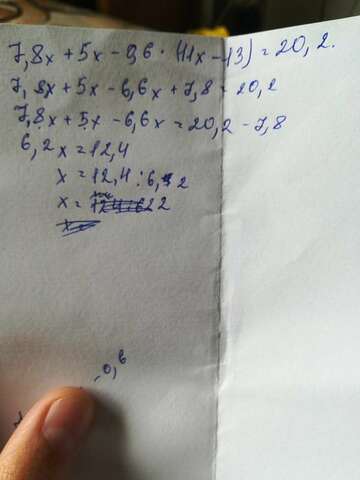 7,8x + 5x - 0,6 · (11x - 13) = 20,2.
7,8x + 5x - 6,6x + 7,8 = 20,2
7,8x + 5x - 6,6x = 20,2 - 7,8
6,2x = 12,4
x = 12,4 : 6,2
x = 2
0,6